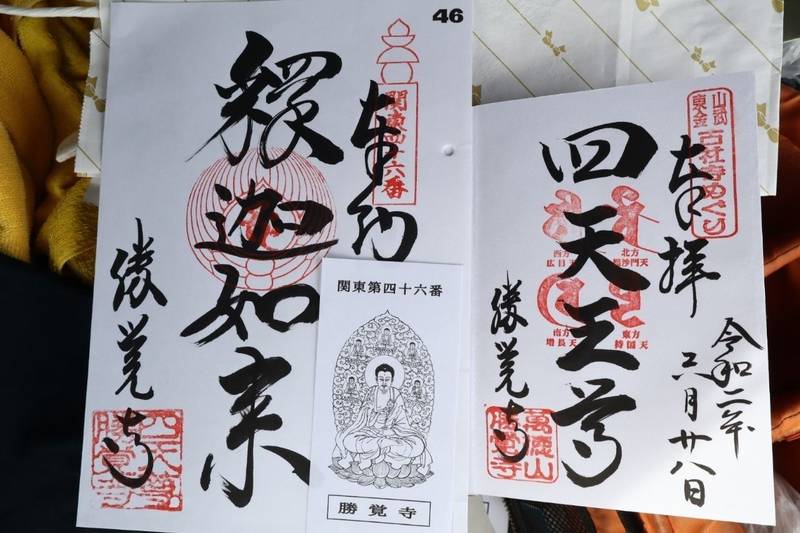 46
関東四十六番
奉納
釋迦如来
勝覚寺
四天尊
勝覚寺
関東第四十六番
勝覚寺
山武
東金
古社寺めぐり
奉拝
四天王尊
西方
広目天
北方
毘沙門天
南方
増長天
東方
持国天
勝覚寺
萬徳山
勝覚寺
令和二年
六月廿八日